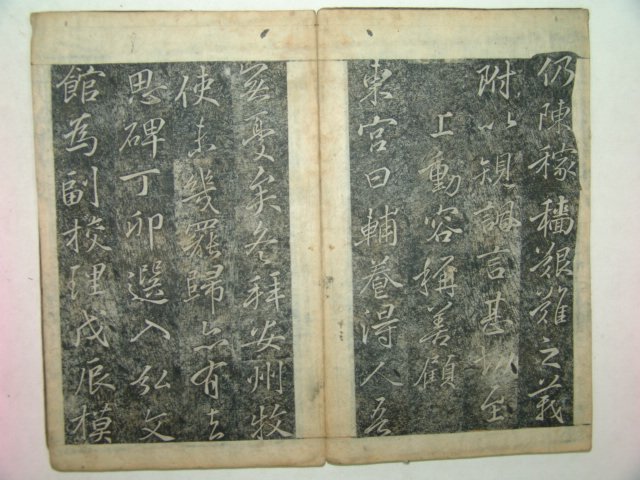 仍陳稼穡艱難之義
附以規諷言甚切至
上動容稱善顧
東宮曰輔養得人吾
無憂矣冬拜安州牧
使未幾罷歸亦有去
思碑丁卯選入弘文
館為副校理戊辰模